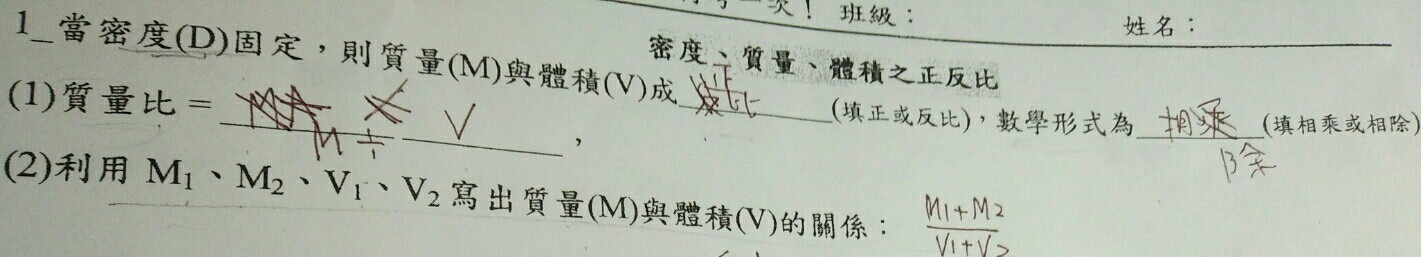 一次！ 班級： 姓名：
密度、質量、體積之正反比
1_當密度(D)固定，則質量(M)與體積(V)成 比 (填正或反比)，數學形式為 相乘 (填相乘或相除)
除
(1)質量比 = V ，
M ÷
(2)利用 M₁、M₂、V₁、V₂ 寫出質量(M)與體積(V)的關係： M1+M2
V1+V2